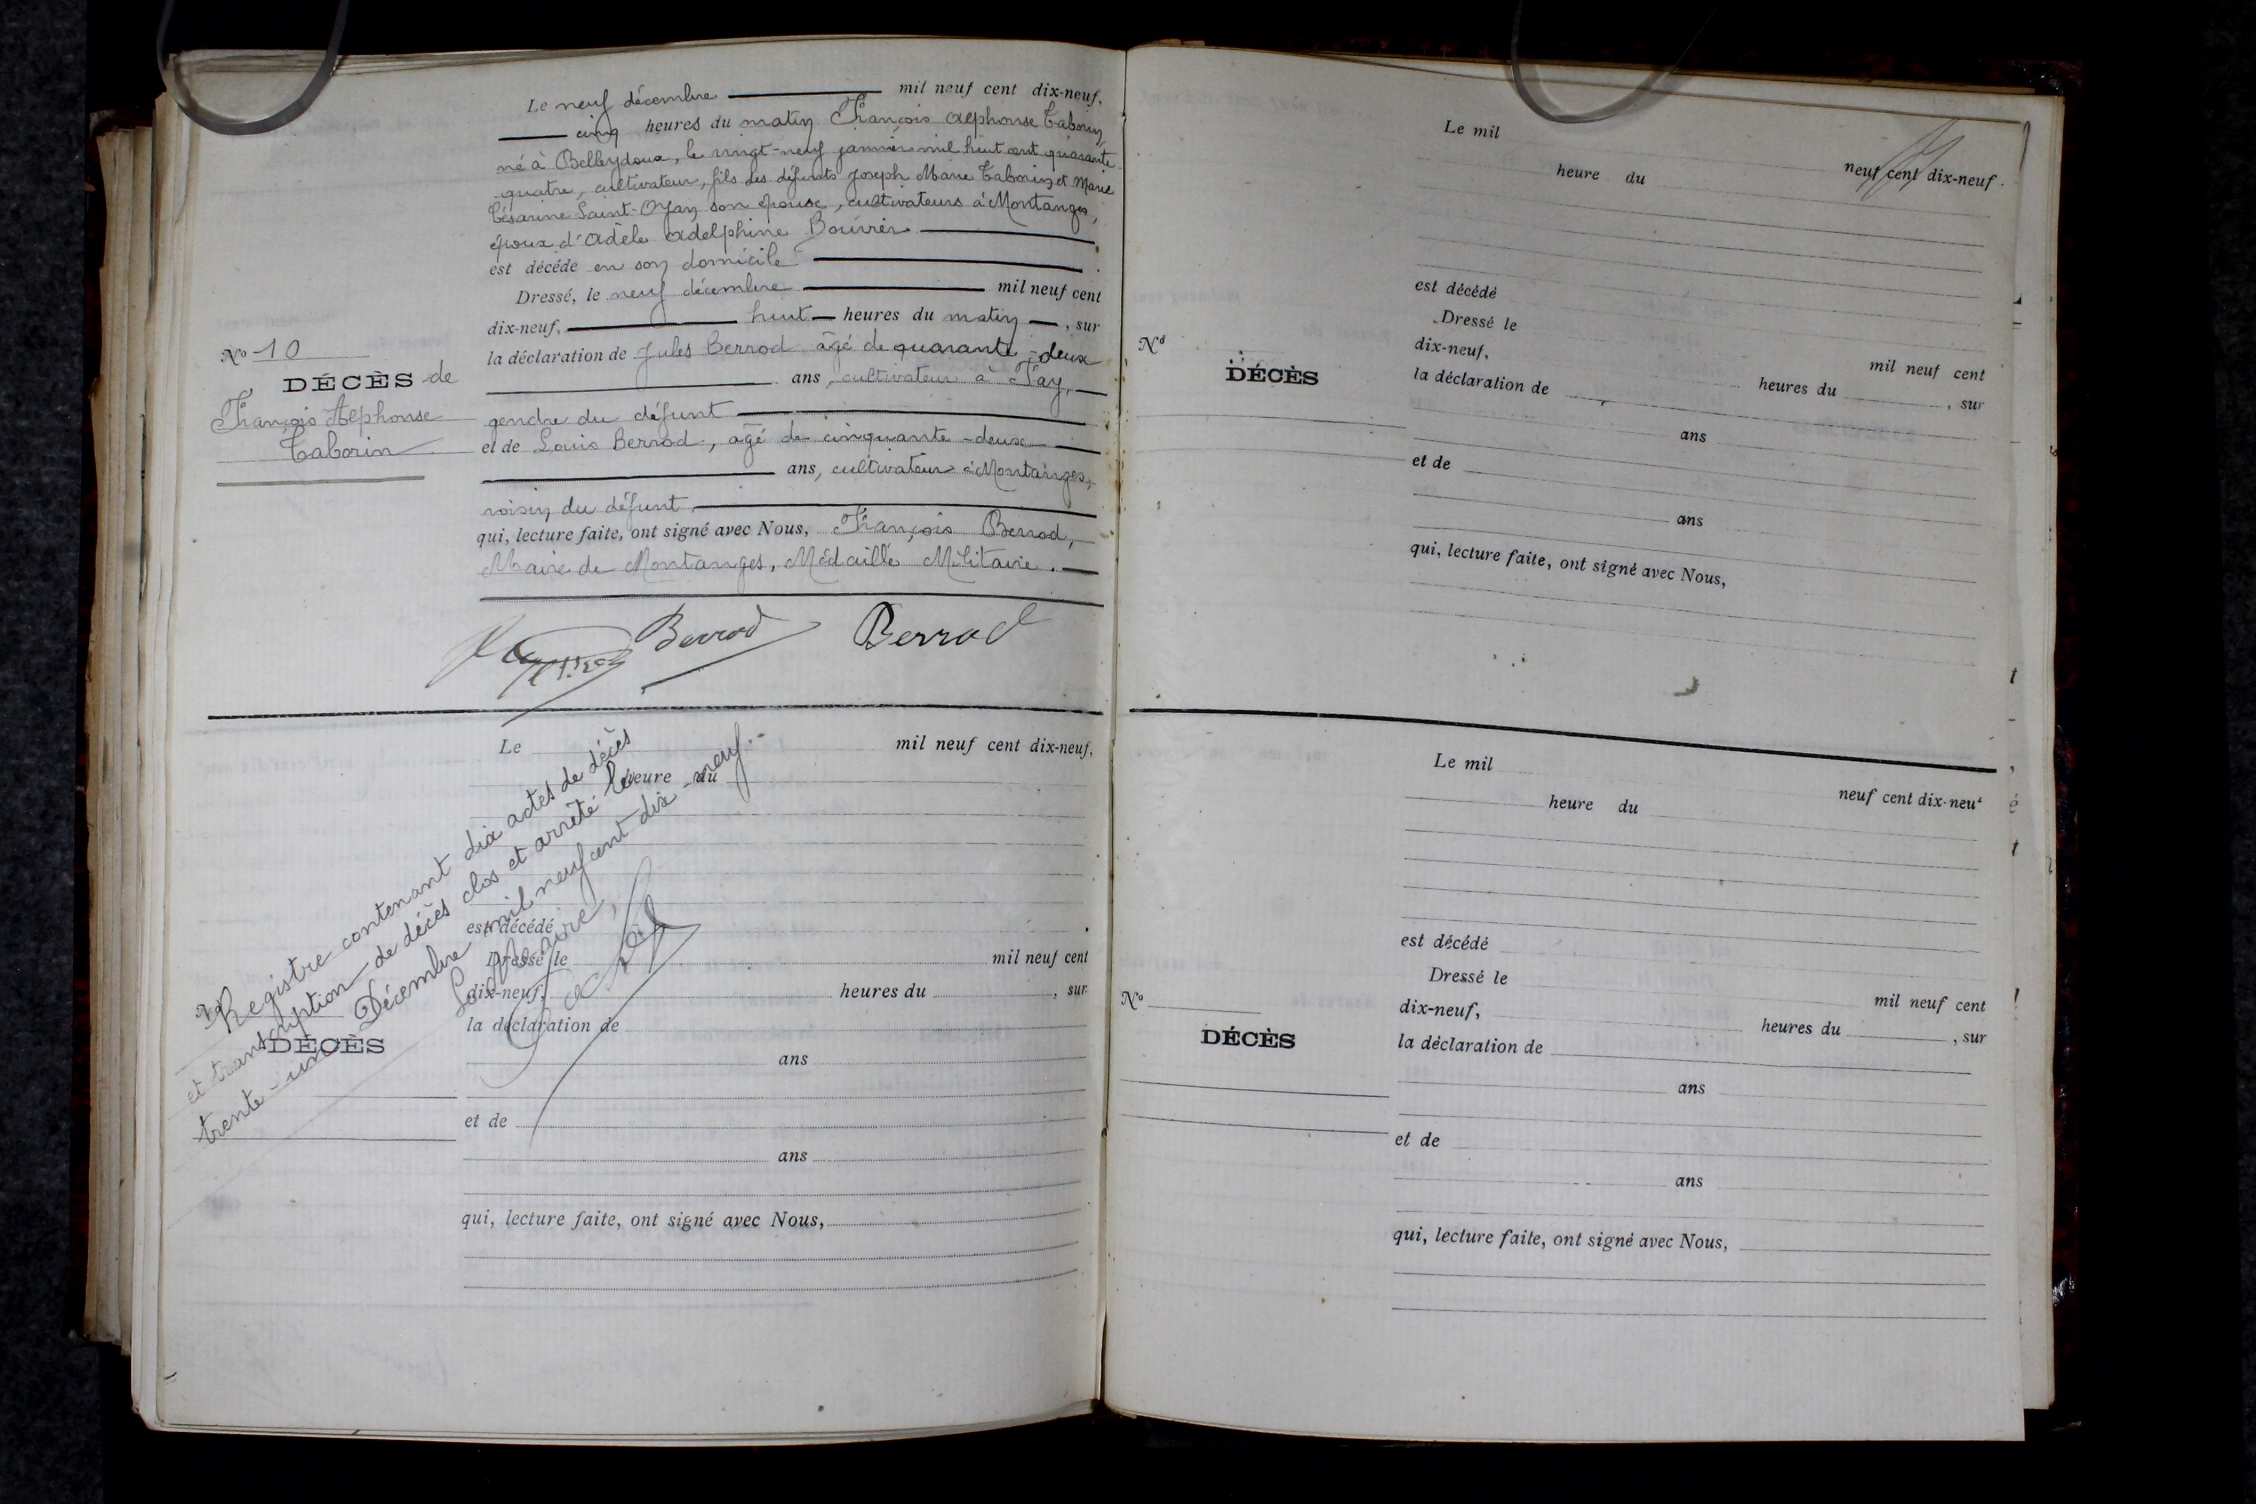 Le neuf décembre mil neuf cent dix-neuf,
cinq heures du matin François Alphonse Taborin,
né à Belleydoux, le vingt-neuf janvier mil huit cent quarante
quatre, cultivateur, fils des défunts Joseph Marie Taborin et Marie
Césarine Saint-Oyan son épouse, cultivateurs à Montanges,
époux d'Adèle Adelphine Bouvier
est décédé en son domicile
Dressé, le neuf décembre mil neuf cent
dix-neuf, huit heures du matin, sur
la déclaration de Jules Berrod âgé de quarante-deux
ans, cultivateur à Fay,
gendre du défunt
et de Louis Berrod, âgé de cinquante-deux
ans, cultivateur à Montanges,
voisin du défunt,
qui, lecture faite, ont signé avec Nous, François Berrod,
Maire de Montanges, Médaillé Militaire.
Nº 10
DÉCÈS de
François Alphonse
Taborin
Berrod Berrod
Le mil neuf cent dix-neuf,
heure du
est décédé
Dressé le mil neuf cent
dix-neuf, heures du , sur
la déclaration de
ans
et de
ans
qui, lecture faite, ont signé avec Nous,
Nº
DÉCÈS
Registre contenant dix actes de décès
et transcription de décès clos et arrêté le
trente-un Décembre mil neuf cent dix-neuf.
Le Maire,
Le mil
neuf cent dix-neuf.
heure du
est décédé
Dressé le
mil neuf cent
dix-neuf,
heures du , sur
la déclaration de
ans
et de
ans
qui, lecture faite, ont signé avec Nous,
Nº
DÉCÈS
Le mil
neuf cent dix-neuf
heure du
est décédé
Dressé le
mil neuf cent
dix-neuf,
heures du , sur
la déclaration de
ans
et de
ans
qui, lecture faite, ont signé avec Nous,
Nº
DÉCÈS